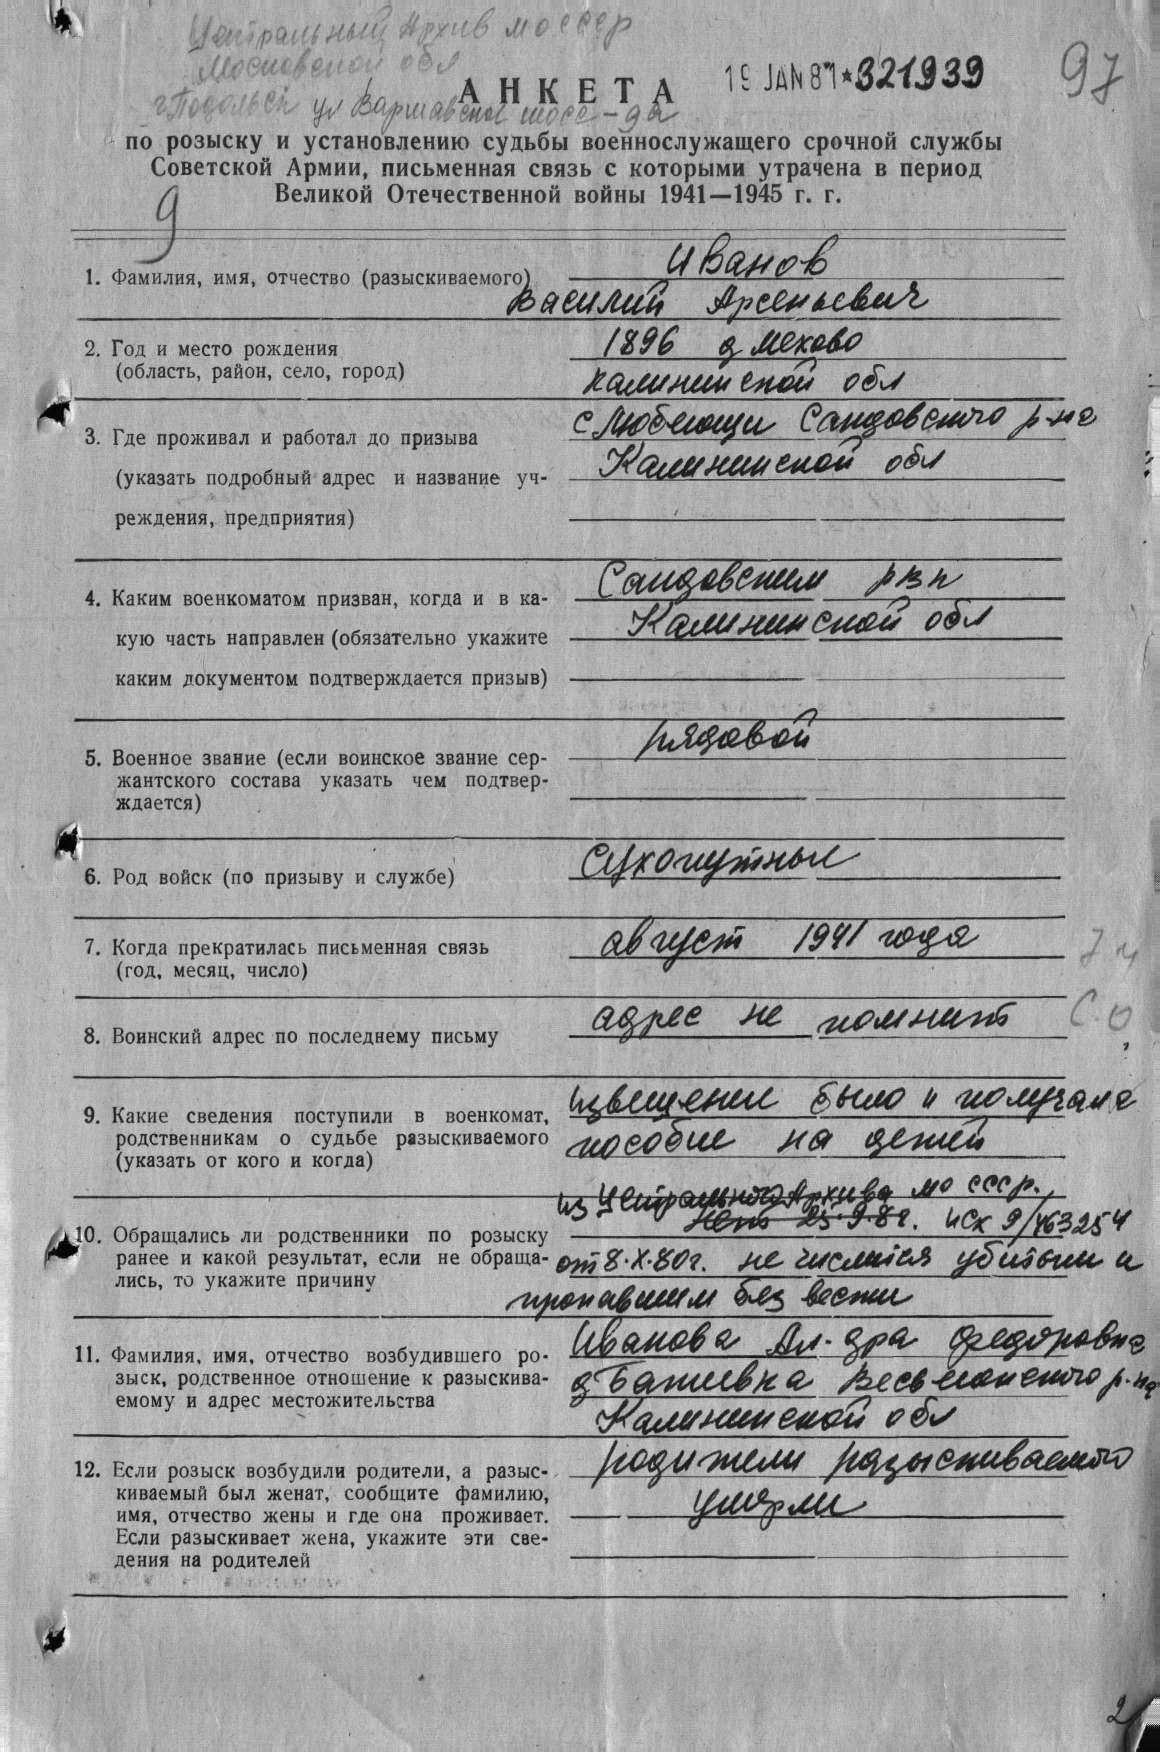 Центральный Архив МО СССР
Московской обл
г Подольск ул Варшавское шоссе - 9а
19 JAN 81 * 321939
97
АНКЕТА
по розыску и установлению судьбы военнослужащего срочной службы
Советской Армии, письменная связь с которыми утрачена в период
Великой Отечественной войны 1941—1945 г. г.
9
1. Фамилия, имя, отчество (разыскиваемого) Иванов
Василий Арсеньевич
2. Год и место рождения 1896 д Мехово
(область, район, село, город) Калининской обл
3. Где проживал и работал до призыва с Любегощи Сандовского р-на
(указать подробный адрес и название уч- Калининской обл
реждения, предприятия)
4. Каким военкоматом призван, когда и в ка- Сандовским рвк
кую часть направлен (обязательно укажите Калининской обл
каким документом подтверждается призыв)
5. Военное звание (если воинское звание сер- рядовой
жантского состава указать чем подтвер-
ждается)
6. Род войск (по призыву и службе) Сухопутные
7. Когда прекратилась письменная связь август 1941 года
(год, месяц, число)
8. Воинский адрес по последнему письму адрес не помнит
С.О
9. Какие сведения поступили в военкомат, извещение было и получала
родственникам о судьбе разыскиваемого пособие на детей
(указать от кого и когда)
из Центрального Архива МО СССР.
10. Обращались ли родственники по розыску исх 9/463254
ранее и какой результат, если не обраща- от 8.X.80г. не числится убитым и
лись, то укажите причину пропавшим без вести
11. Фамилия, имя, отчество возбудившего ро- Иванова Ал-дра Федоровна
зыск, родственное отношение к разыскива- д Башевка Весьегонского р-на
емому и адрес местожительства Калининской обл
12. Если розыск возбудили родители, а разыс- родители разыскиваемого
киваемый был женат, сообщите фамилию, умерли
имя, отчество жены и где она проживает.
Если разыскивает жена, укажите эти све-
дения на родителей
2